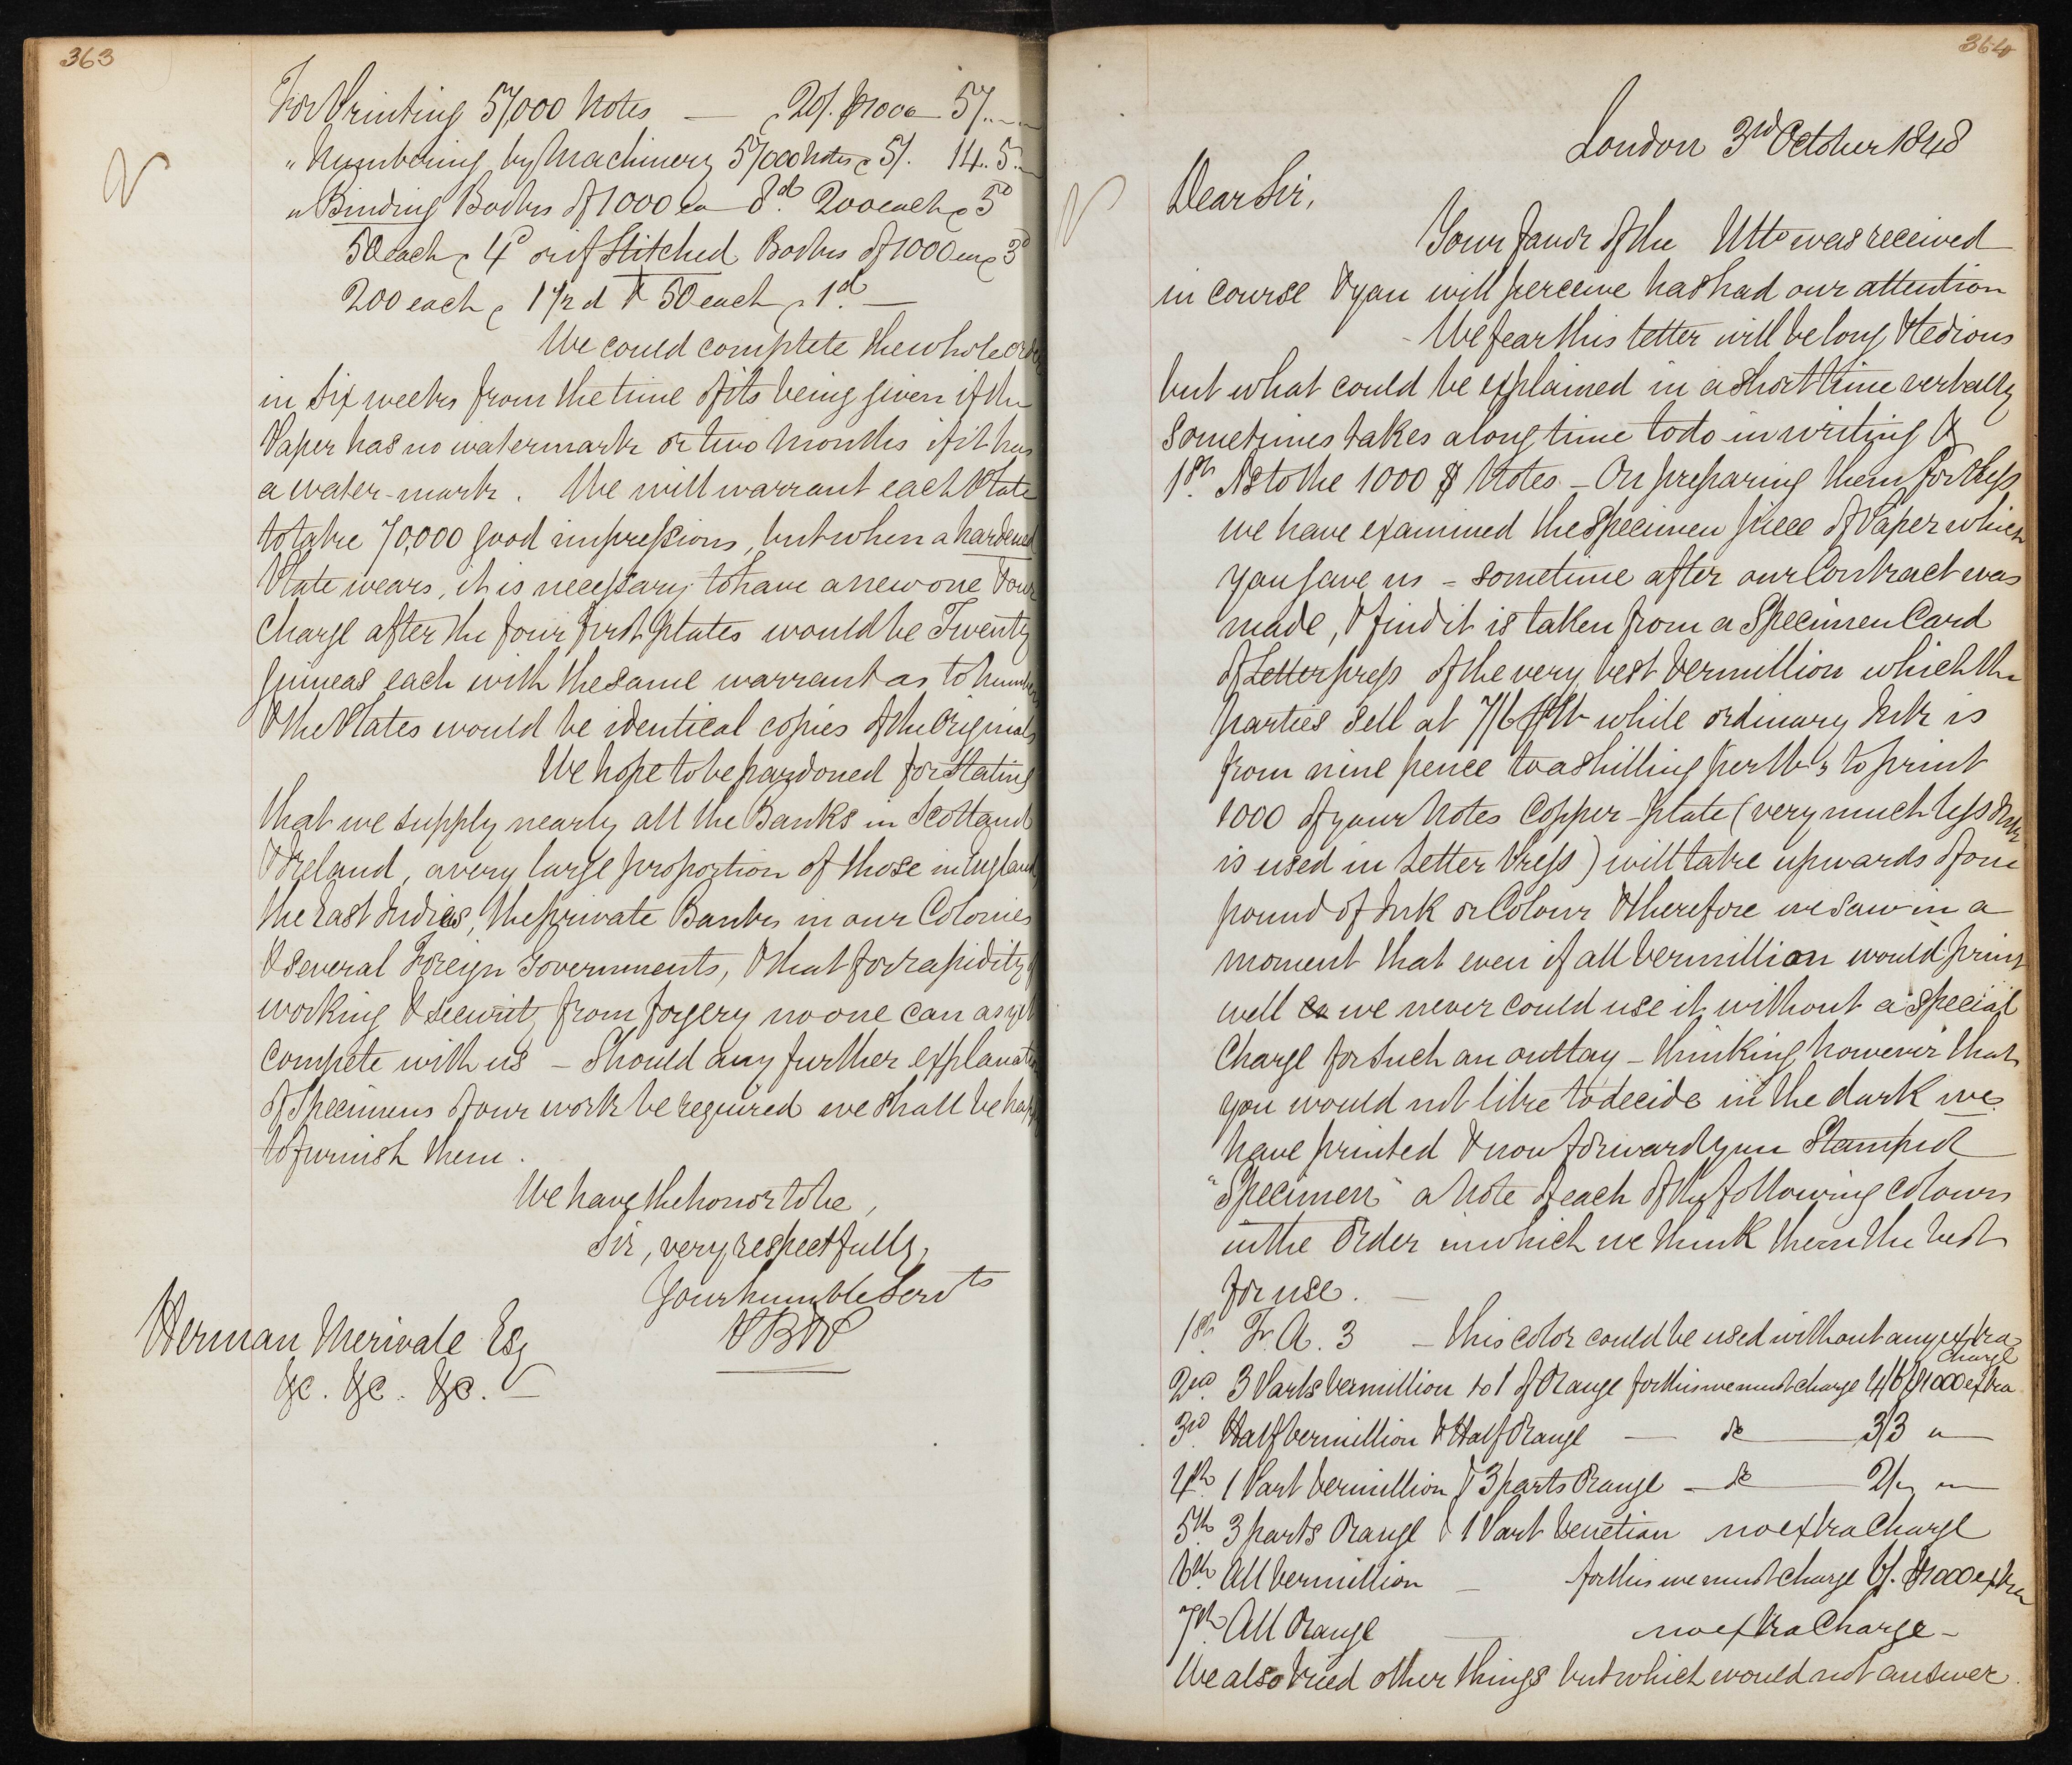 363
For Printing 57,000 Notes — @ 20/. ⅌ 1000 — 57..
" Numbering by Machinery 57000 Notes @ 5/. 14..5..
" Binding Books of 1000 ea 8d. 200 each @ 5d
50 each @ 4d or if Stitched Books of 1000 ea @ 3d
200 each @ 1 1/2 d & 50 each @ 1d. —
We could complete the whole order
in Six weeks from the time of its being given if the
Paper has no watermark or two Months if it has
a water-mark. We will warrant each Plate
to take 70,000 good impressions, but when a hardened
Plate wears, it is necessary to have a new one & our
Charge after the four first plates would be Twenty
Guineas each with the same warrant as to number
& the Plates would be identical copies of the Originals
We hope to be pardoned for Stating
that we supply nearly all the Banks in Scotland
& Ireland, a very large proportion of those in England,
the East Indies, the private Banks in our Colonies
& several Foreign Governments, & that for rapidity of
working & security from forgery no one can as yet
compete with us – Should any further explanation
of Specimens of our work be required we shall be happy
to furnish them.
We have the honor to be,
Sir, very respectfully,
Your humble Servts
PB&P
Herman Merivale Esq
&c. &c. &c.
364
London 3rd October 1848
Dear Sir,
Your favor of the Ulto was received
in course & you will perceive has had our attention
– We fear this letter will be long & tedious
but what could be explained in a short time verbally
sometimes takes a long time to do in writing &
1st. As to the 1000 $ Notes – On preparing them for Press
we have examined the Specimen piece of Paper which
you gave us – sometime after our Contract was
made, & find it is taken from a Specimen Card
of Letterpress of the very best Vermillion which the
parties sell at 7/6 ⅌ lb while ordinary Ink is
from nine pence to a shilling per lb & to print
1000 of your Notes Copper-plate (very much less Ink
is used in Letter Press) will take upwards of one
pound of Ink or Colour & therefore we saw in a
moment that even if all Vermillion would print
well we never could use it without a special
Charge for such an outlay – thinking however that
you would not like to decide in the dark we
have printed & now forward you Stamped
"Specimen" a Note of each of the following colours
in the Order in which we think them the best
for use. —
1st. Fr. A. 3 – this color could be used without any extra
charge
2nd. 3 Parts Vermillion to 1 of Orange for this we must charge 4/6 ⅌ 1000 extra
3rd. Half Vermillion & Half Orange — do — 3/3 "
4th. 1 Part Vermillion & 3 parts Orange — do — 2/ "
5th. 3 parts Orange & 1 Part Venetian no extra Charge
6th. All Vermillion – for this we must charge 6/. ⅌ 1000 extra
7th. All Orange — no extra Charge –
We also tried other things but which would not answer.